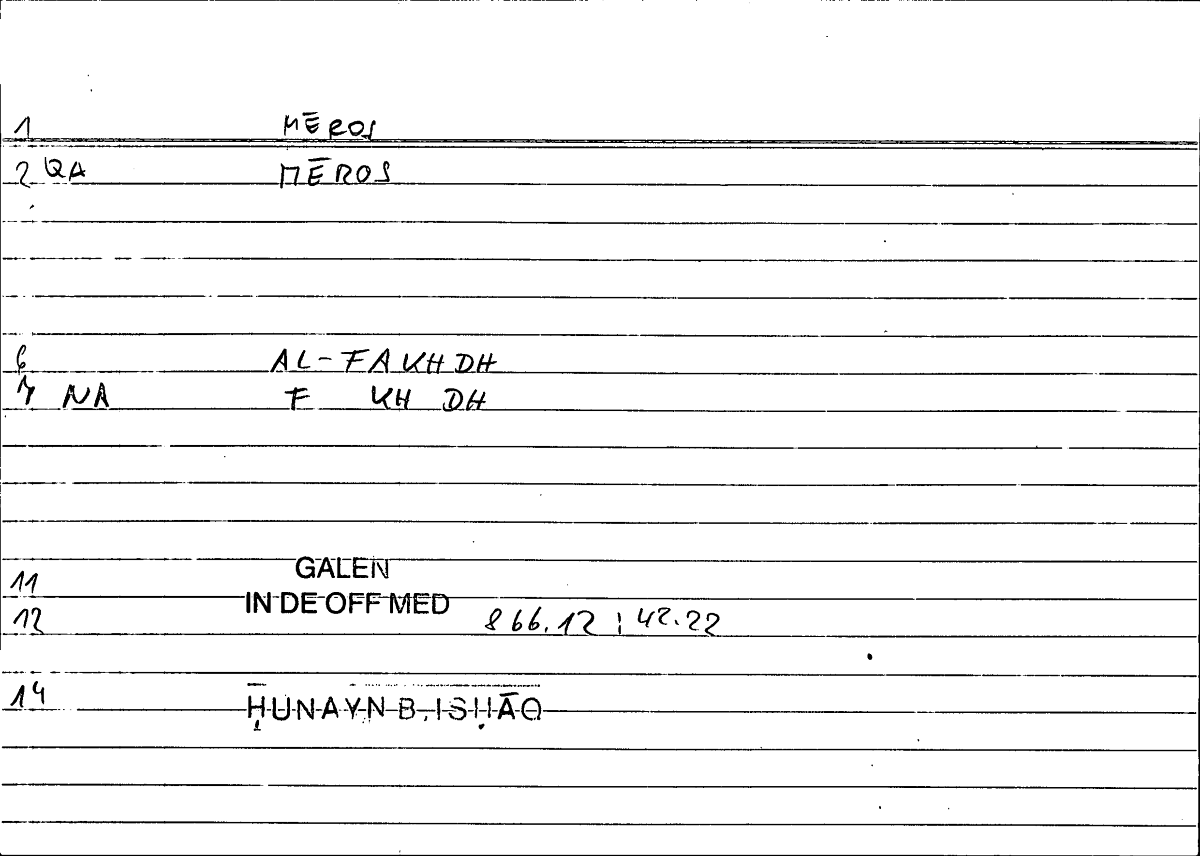 1 MĒROS
2 QA MĒROS
6 AL-FAKHDH
7 NA F KH DH
11 GALEN
12 IN DE OFF MED 866.12 ; 42.22
14 ḤUNAYN B. ISḤĀQ